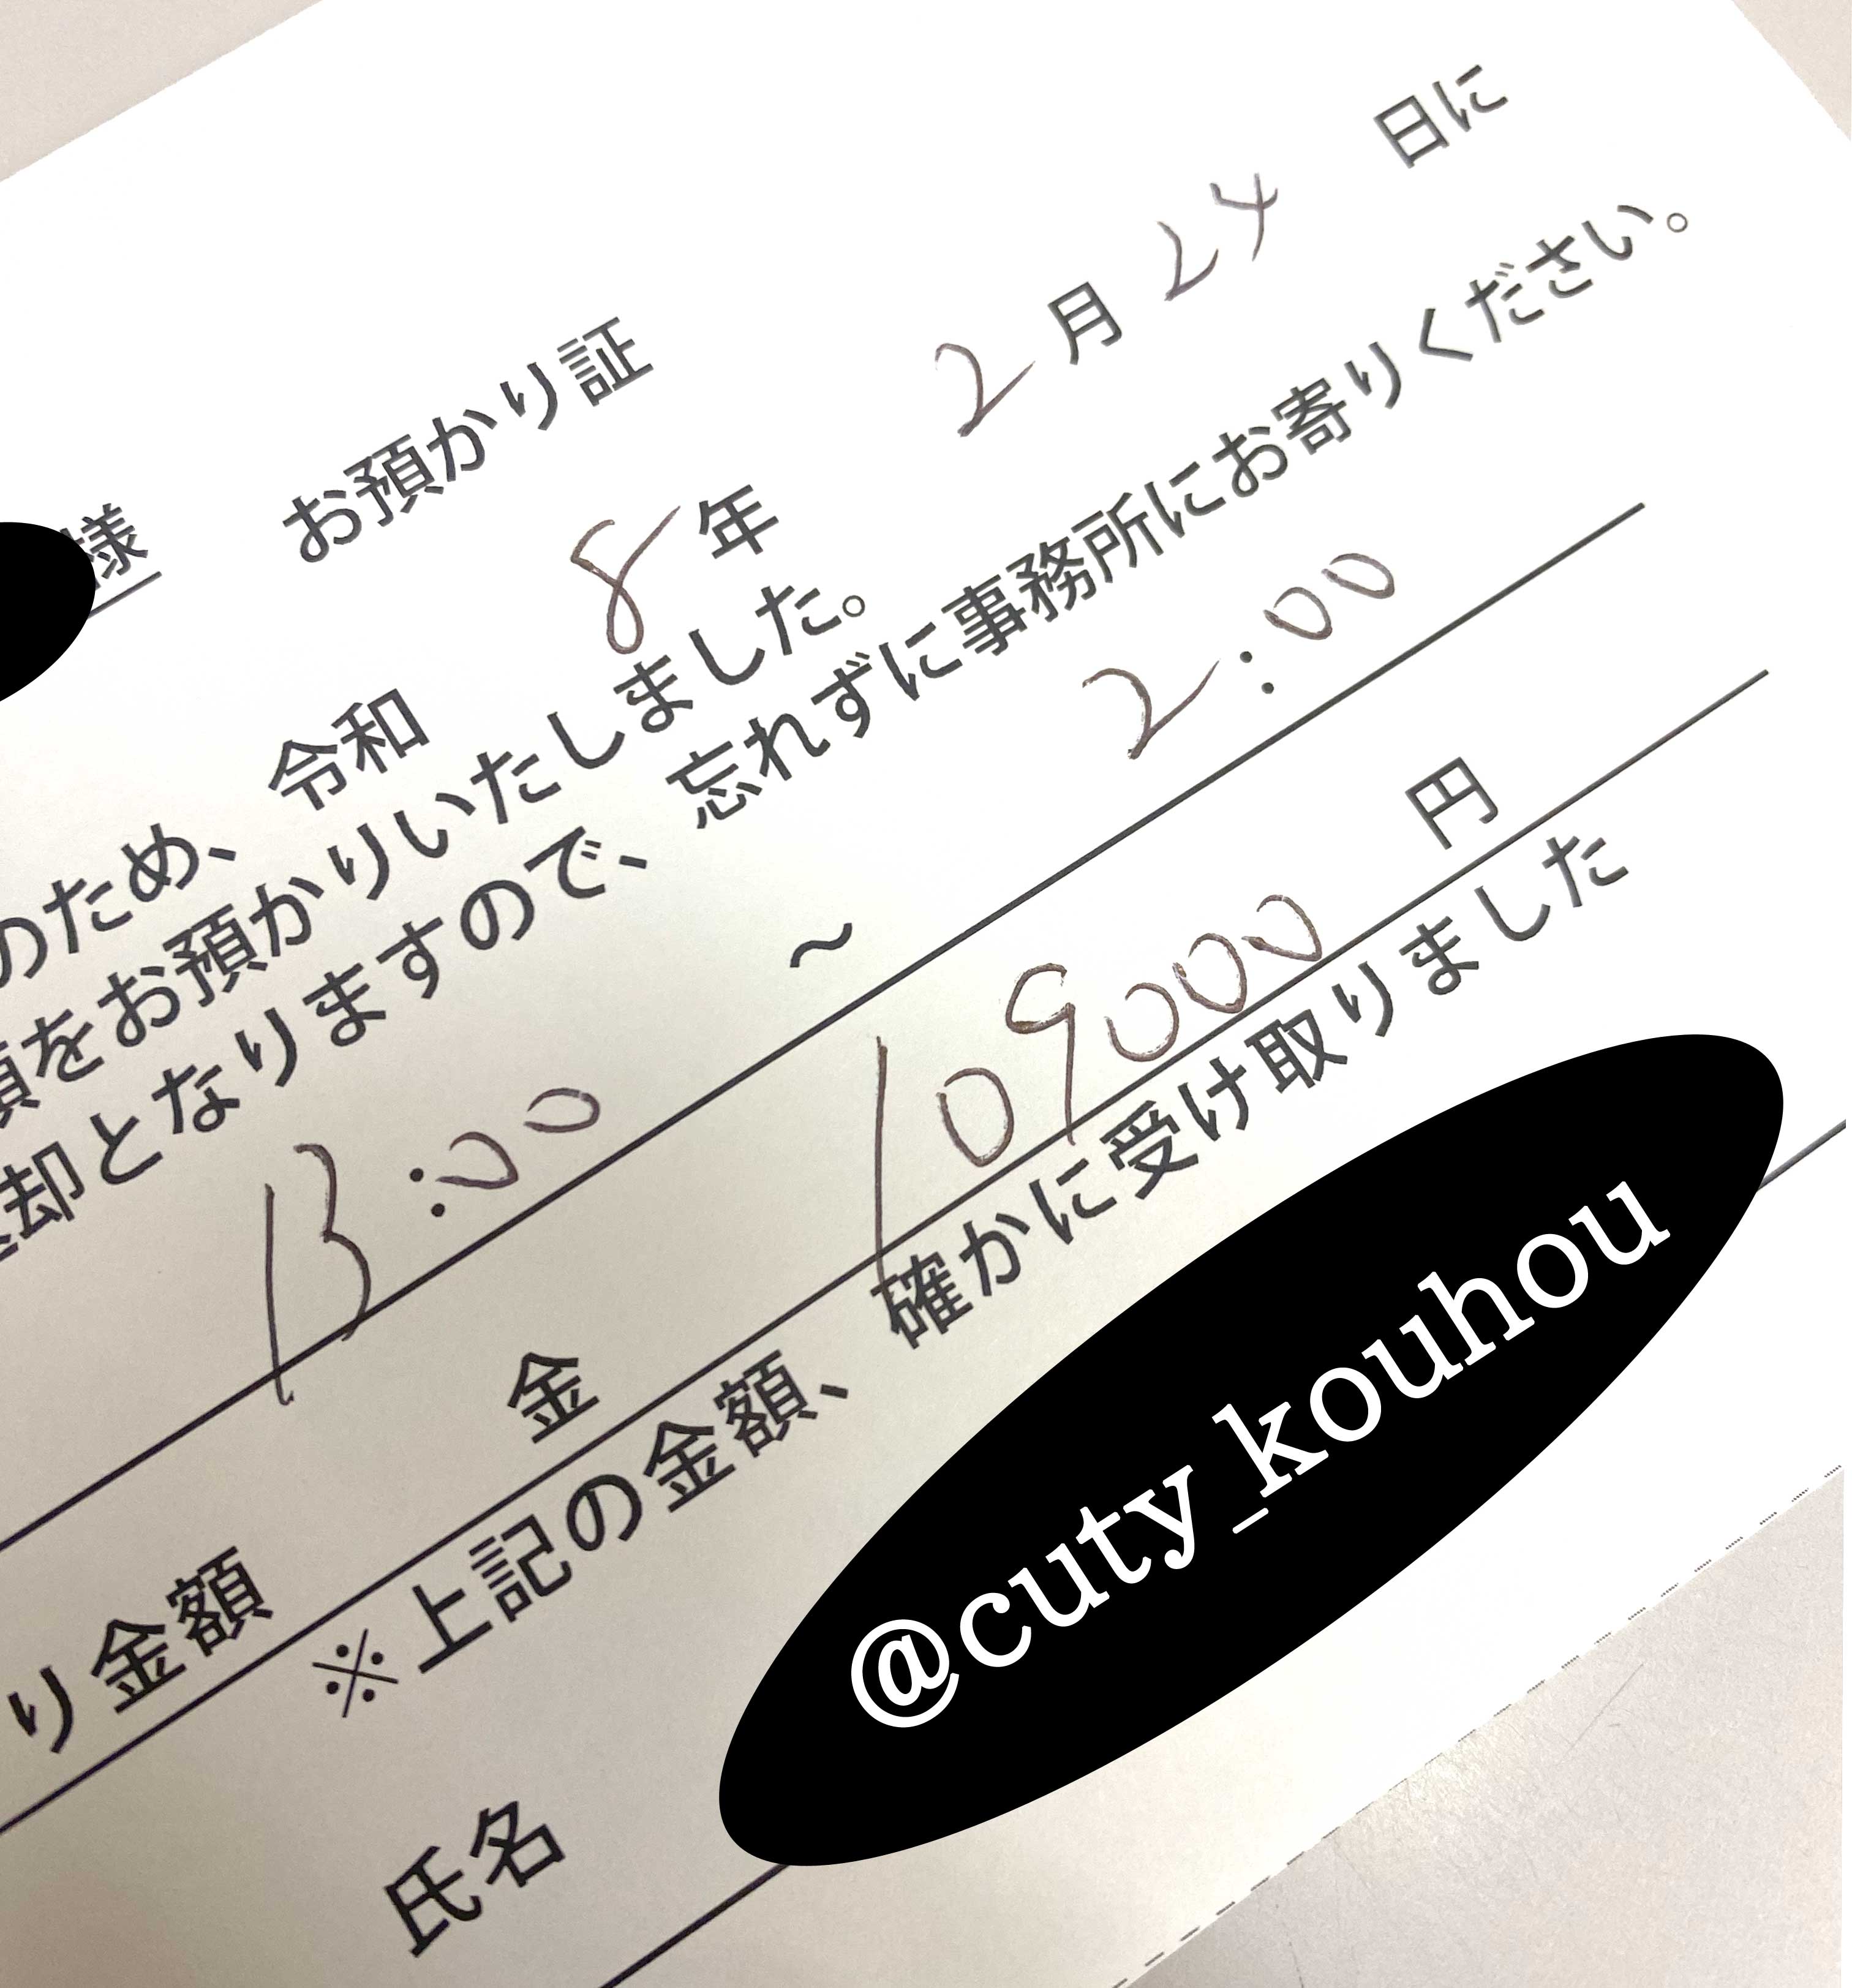 様 お預かり証
のため、 令和 8 年 2 月 24 日に
をお預かりいたしました。
却となりますので、忘れずに事務所にお寄りください。
13:00 ~ 2:00
り金額 金 109000 円
※上記の金額、確かに受け取りました
氏名 @cuty_kouhou